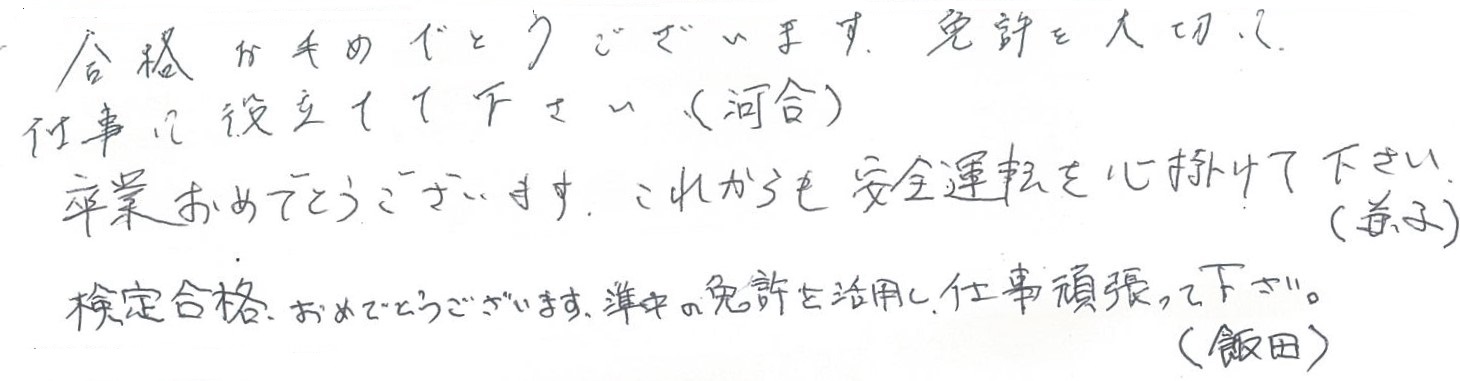 合格おめでとうございます。免許を大切に、
仕事に役立てて下さい。(河合)
卒業おめでとうございます。これからも安全運転を心掛けて下さい。
(益子)
検定合格、おめでとうございます。準中の免許を活用し、仕事頑張って下さい。
(飯田)